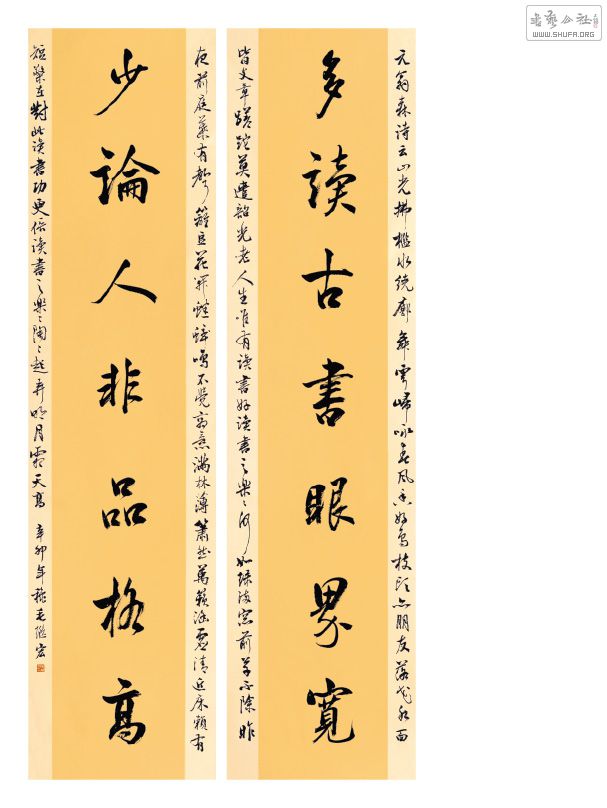 书艺公社
WWW.SHUFA.ORG
元翁森诗云山光拂檻水绕廊舞雩歸咏春风香好鸟枝頭亦朋友落花水面
多讀古書眼界寬
皆文章蹉跎莫遣韶光老人生唯有读書好读書之樂〻何如绿满窓前草不除昨
夜前庭葉有聲籬豆花開蟋蟀鳴不覺商意满林薄蕭然萬籟涵虚清近床賴有
少論人非品格高
短檠在對此读書功更倍读書之樂〻陶〻起弄明月霜天高 辛卯年穐毛继宏